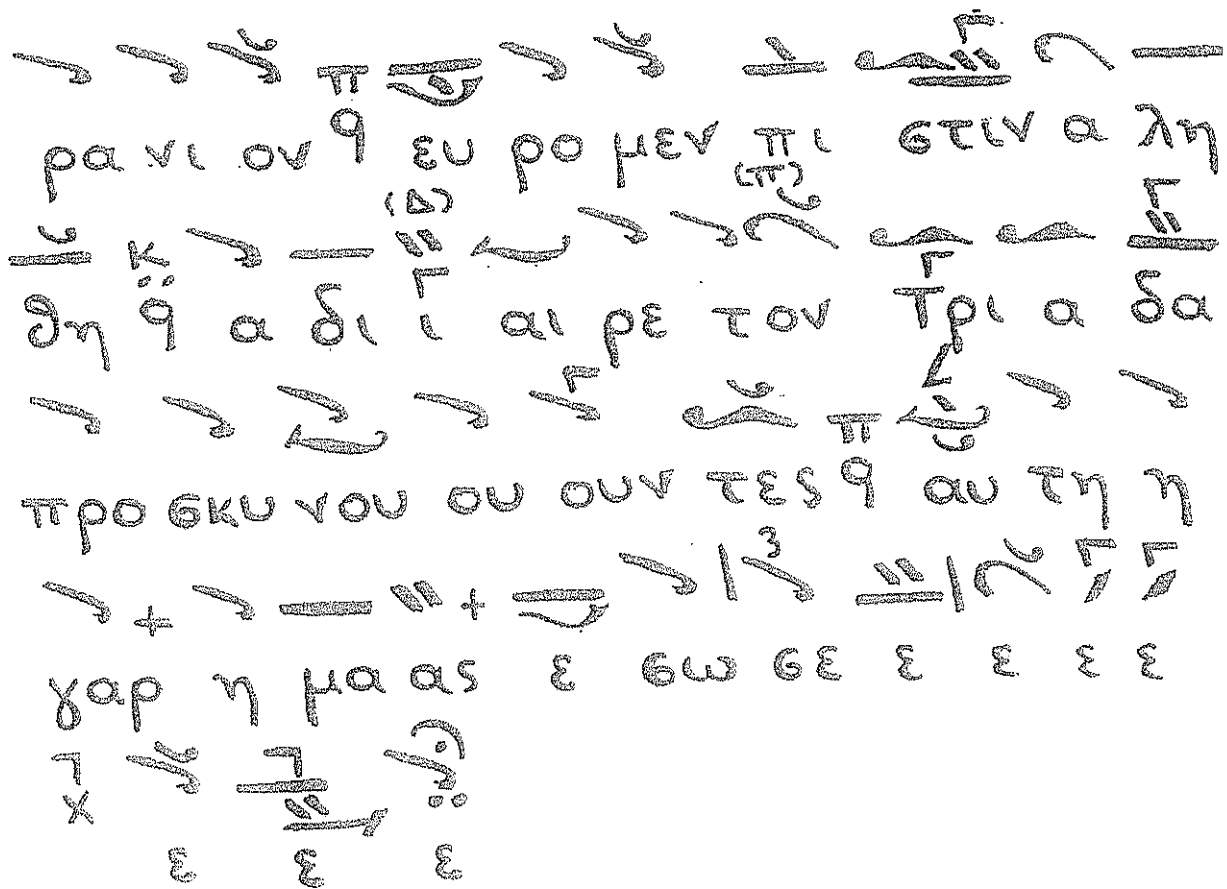 ρα νι ον π ϥ ευ ρο μεν πι στιν α λη
(Δ) (π)
θη κ ϥ α δι ι αι ρε τον Τρι α δα
προ σκυ νου ου ουν τες π ϥ αυ τη η
γαρ η μα ας ε σω σε ε ε ε ε
χ ε ε ε